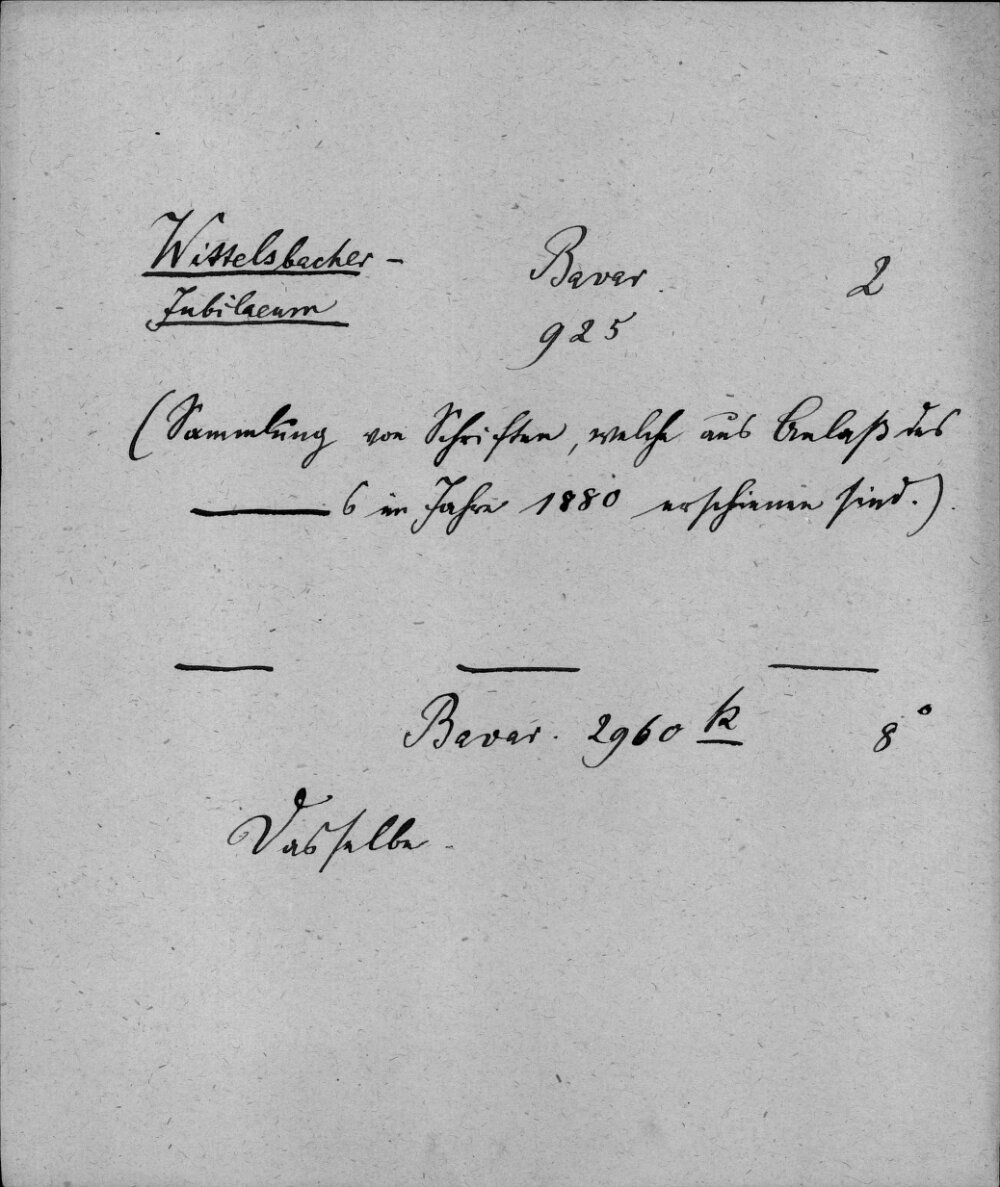 Wittelsbacher- Bavar. 2
Jubilaeum 925
(Sammlung von Schriften, welche aus Anlaß des
——— s im Jahre 1880 erschienen sind.)
— — —
Bavar. 2960 k 8°
Dasselbe.